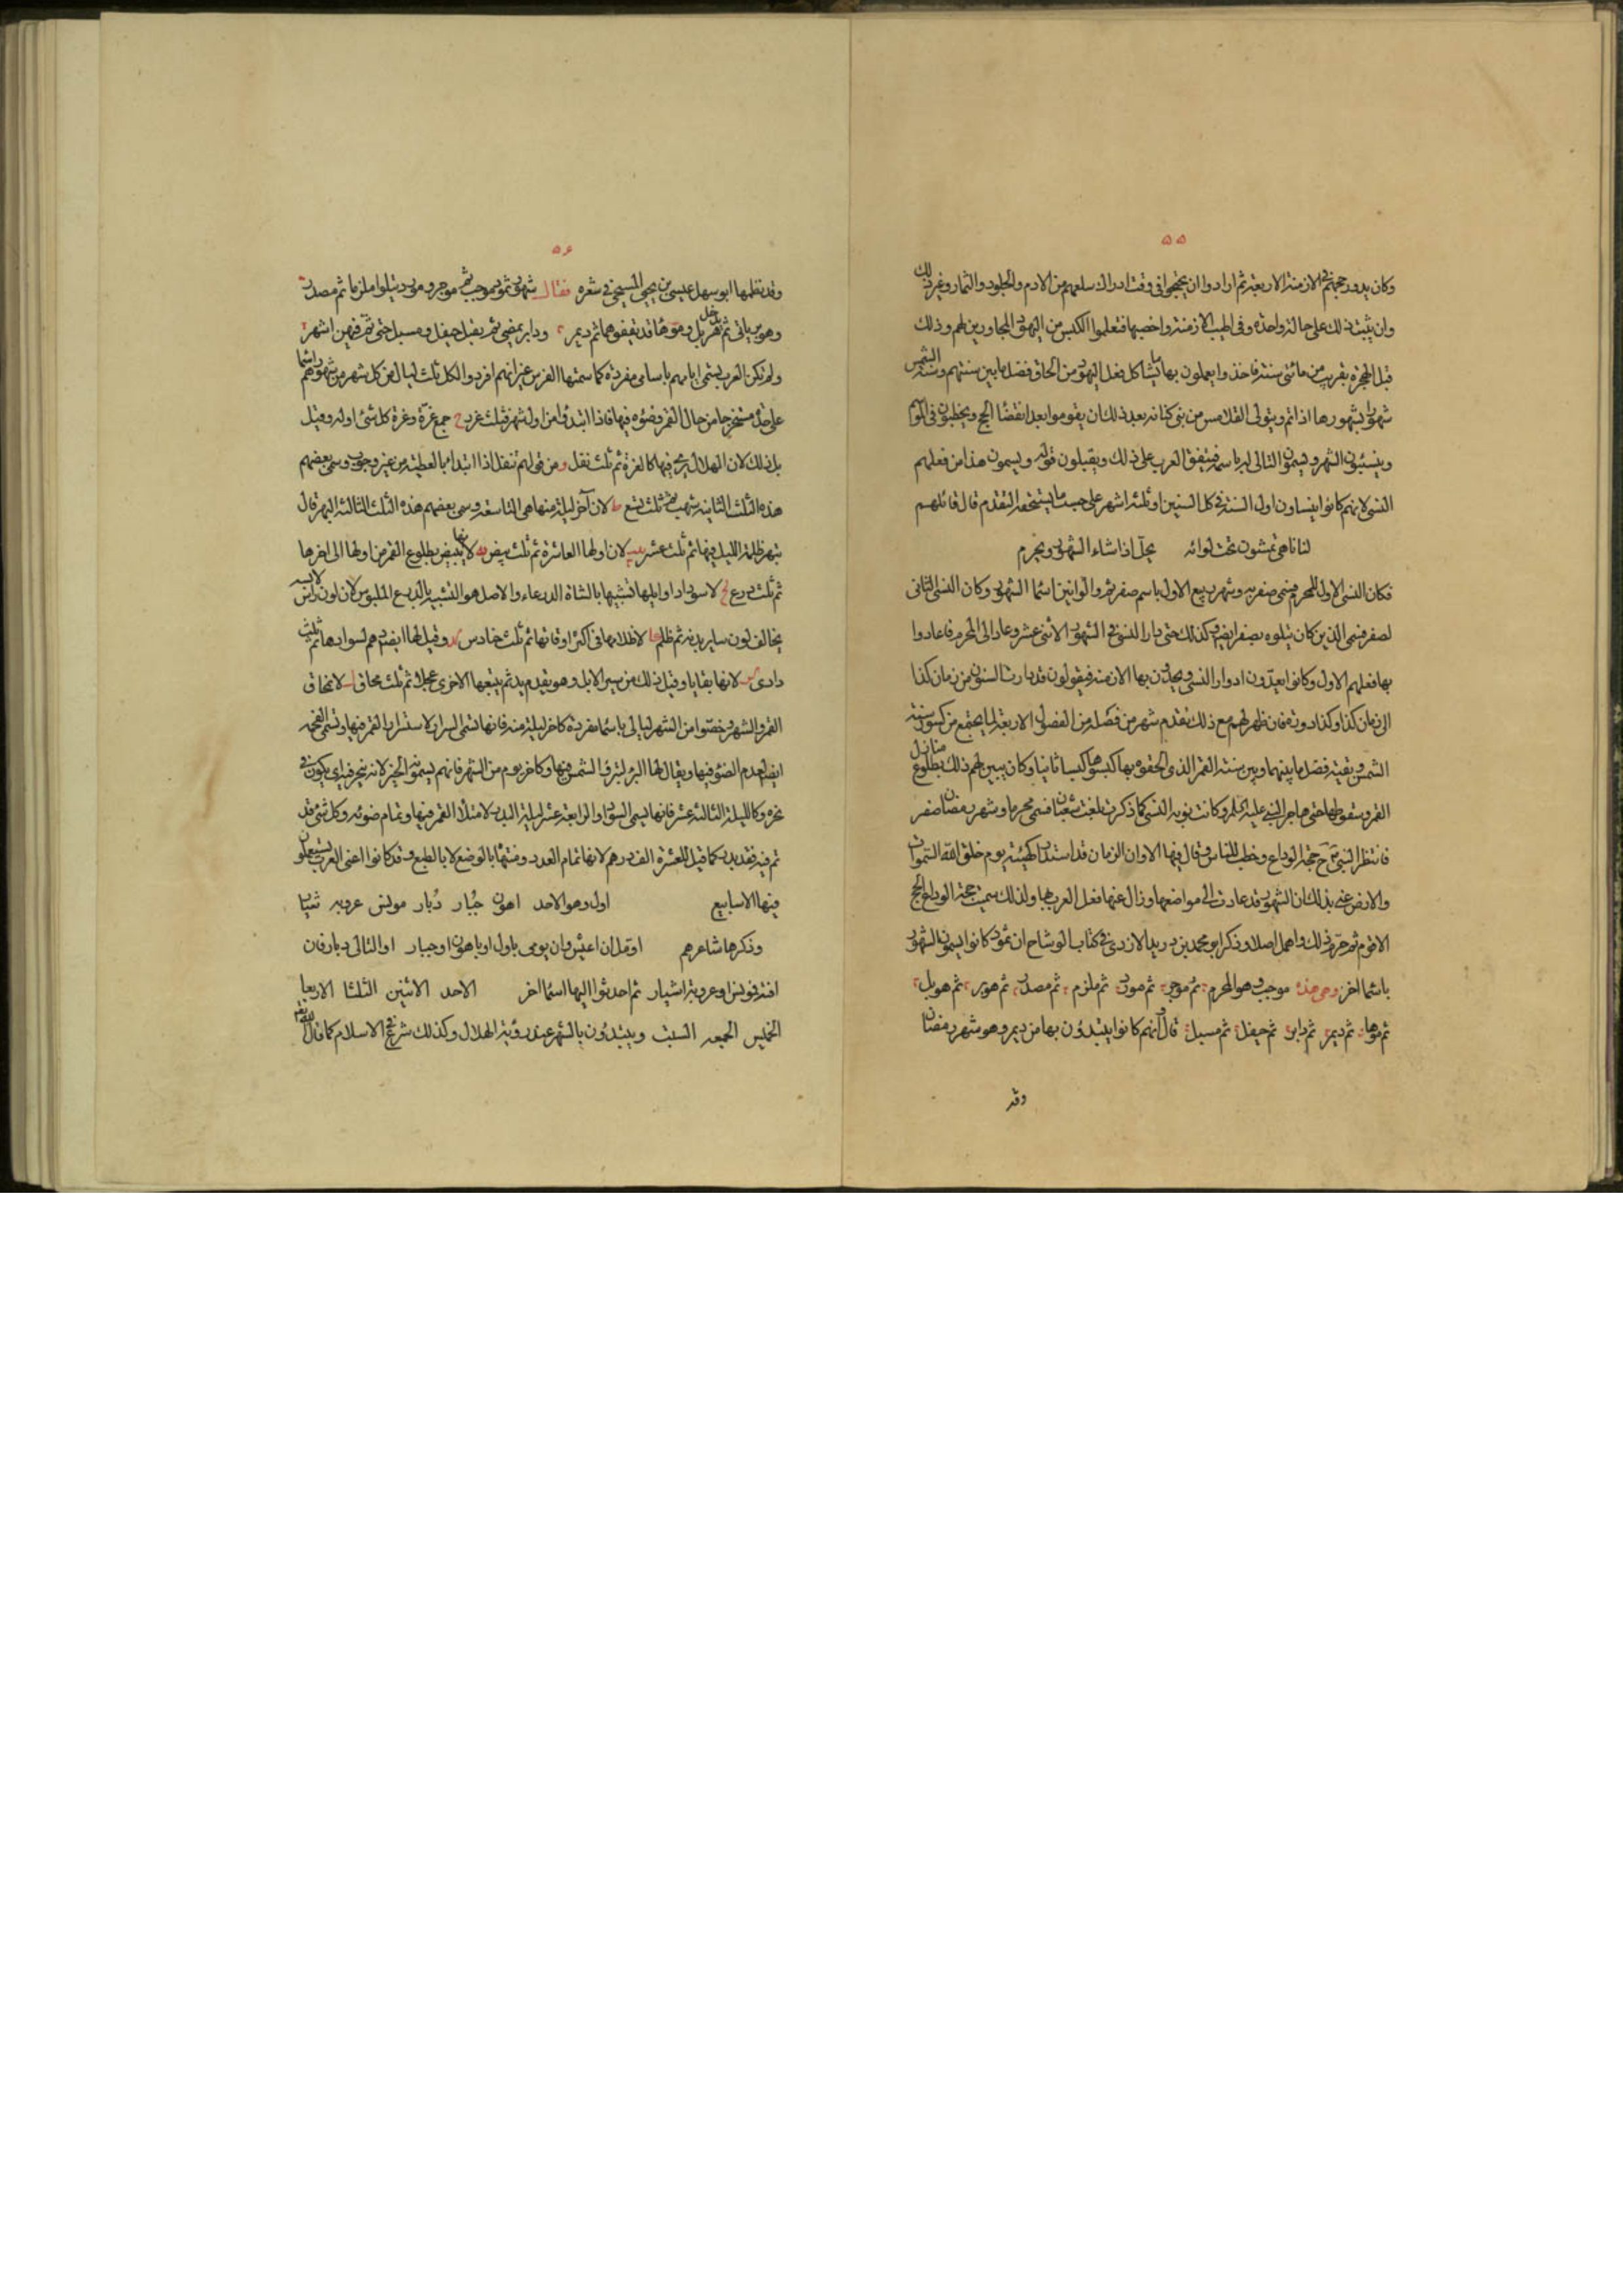 ٥٥
وكان يدور حجهم في الازمنة الاربعة ثم ارادوا ان يحجوا في وقت ادراك سلعهم من الادم والجلود والثمار وغير ذلك
وان يثبت ذلك على حالة واحدة وفي اطيب الازمنة واخصبها فتعلموا الكبس من اليهود المجاورين لهم وذلك
قبل الهجرة بقريب من مائتي سنة فاخذوا يعملون بها ما يشاكل فعل اليهود من الحاق فضل ما بين سنتهم وسنة الشمس
شهرا بشهورها اذا تم ويتولى القلامس من بني كنانة بعد ذلك ان يقوموا بعد انقضا الحج ويخطبون في الموسم
وينسئون الشهر ويسمون التالي له باسمه فيتفق العرب على ذلك ويقبلون قوله ويسمون هذا من فعلهم
النسي لانهم كانوا ينساون اول السنة في كل السنين او ثلثة اشهر على حسب ما يستحقه التقدم قال قائلهم
لنا ناسي تمشون تحت لوائه يحل اذا شاء الشهور ويحرم
فكان النسي الاول للمحرم فسمي صفر به وشهر ربيع الاول باسم صفر ثم والوا بين اسما الشهور وكان النسي الثاني
لصفر فسمي الذي كان يتلوه بصفر ايضا وكذلك حتى دار النسي في الشهور الاثني عشر وعاد الى المحرم فاعادوا
بها فعلهم الاول وكانوا يعدون ادوار النسي ويحدون بها الازمنة فيقولون قد دارت السنون من زمان كذا
الى زمان كذا وكذا دورة فان ظهر لهم مع ذلك تقدم شهر من فصله من الفصول الاربعة لما يجتمع من كسور سنة
الشمس وبقية فصل ما بينهما وبين سنة القمر الذي الحقوه بها كبسوها كبسا ثانيا وكان يبين لهم ذلك بطلوع منازل
القمر وسقوطها حتى هاجر النبي عليه السلم وكانت نوبة النسي كما ذكرت بلغت شعبان فسمي محرما وشهر رمضان صفر
فانتظر النبي ص ح حجة الوداع وخطب للناس وقال فيها الا وان الزمان قد استدار كهيئته يوم خلق الله السموات
والارض عني بذلك ان الشهور قد عادت الى مواضعها وزال عنها فعل العرب بها ولذلك سميت حجة الوداع الحج
الاقوم ثم حرم ذلك واهمل اصلا وذكر ابو محمد بن دريد الازدي في كتاب الوشاح ان ثمود كانوا يسمون الشهور
باسما اخر وهي هذه موجب وهو المحرم ثم موجر ثم مورد ثم ملزم ثم مصدر ثم هوبر ثم هوبل
ثم موها ثم ديمر ثم دابر ثم حيفل ثم مسبل قال وانهم كانوا يبتدؤن بها من ديمر وهو شهر رمضان
وقد
٥٦
وقد نظمها ابو سهل عيسى بن يحيى المسيحي في شعره فقال شهور ثمود موجب ثم موجر ومورد يتلو ملزما ثم مصدر
وهوبر ياتي ثم يدخل هوبل وموها قد يقفوها ثم ديمر ودابر يمضي ثم يقبل حيفل ومسبل حتى تم فيهن اشهر
ولم تكن العرب يسمي ايامهم باسامي مفردة كما سمتها الفرس غير انهم افردوا لكل ثلث ليال من كل شهر من شهورهم اسما
على حدة مستخرجا من حال القمر وضوءه فيها فاذا ابتدؤا من اول شهر فثلث غرر ج جمع غرة وغرة كل شئ اوله وقيل
بل ذلك لان الهلال يرى فيها كالغرة ثم ثلث نفل و من قولهم تنفل اذا ابتدا بالعطية من غير وجوب وسمى بعضهم
هذه الثلث الثانية شهب ثم ثلث تسع ط لان آخر ليلة منها هي التاسعة وسمى بعضهم هذه الثلث الثالثة البهر قال
تبهر ظلمة الليل فيها ثم ثلث عشر يب لان اولها العاشرة ثم ثلث بيض يه لانها تبيض بطلوع القمر من اولها الى اخرها
ثم ثلث درع يح لاسوداد اوايلها تشبيها بالشاة الدرعاء والاصل هو التشبيه بالدرع الملبوس لان لون راس لابسه
يخالف لون ساير بدنه ثم ظلم كا لاظلامها في اكثر اوقاتها ثم ثلث حنادس كد وقيل لها ايضا دهم لسوادها ثم ثلث
دادي كز لانها بقايا وقيل ذلك من سير الابل وهو يقدم يد ثم يتبعها الاخرى عجلا ثم ثلث محاق ل لانمحاق
القمر والشهر وخصوا من الشهر ليالي باسما مفردة كاخر ليلة منه فانها تسمى السرار لاستسرار القمر فيها وتسمى الفحمة
ايضا لعدم الضوء فيها ويقال لها البراء لتبرؤ الشمس فيها وكاخر يوم من الشهر فانهم يسمونه النحير لانه ينحر فيه اي يكون في
نحره وكالليلة الثالثة عشر فانها يسمى السواء والرابعة عشر ليلة البدر لامتلاء القمر فيها وتمام ضوئه وكل شئ قد
تم فيه فقد بدر كما قيل للعشرة الف درهم بدرة لانها تمام العدد ومنتهاه بالوضع لا بالطبع وقد كانوا اعني العرب يستعملون
فيها الاسابيع اول وهو الاحد اهون جبار دبار مونس عروبه شيار
وذكرها شاعرهم اومل ان اعيش وان يومي باول او باهون او جبار او التالي دبار فان
افته فمونس او عروبة اشيار ثم احدثوا اليها اسما اخر الاحد الاثنين الثلثا الاربعا
الخميس الجمعه السبت ويبتدؤن بالشهر عند رؤية الهلال وكذلك شرع في الاسلام كما قال الله تعم